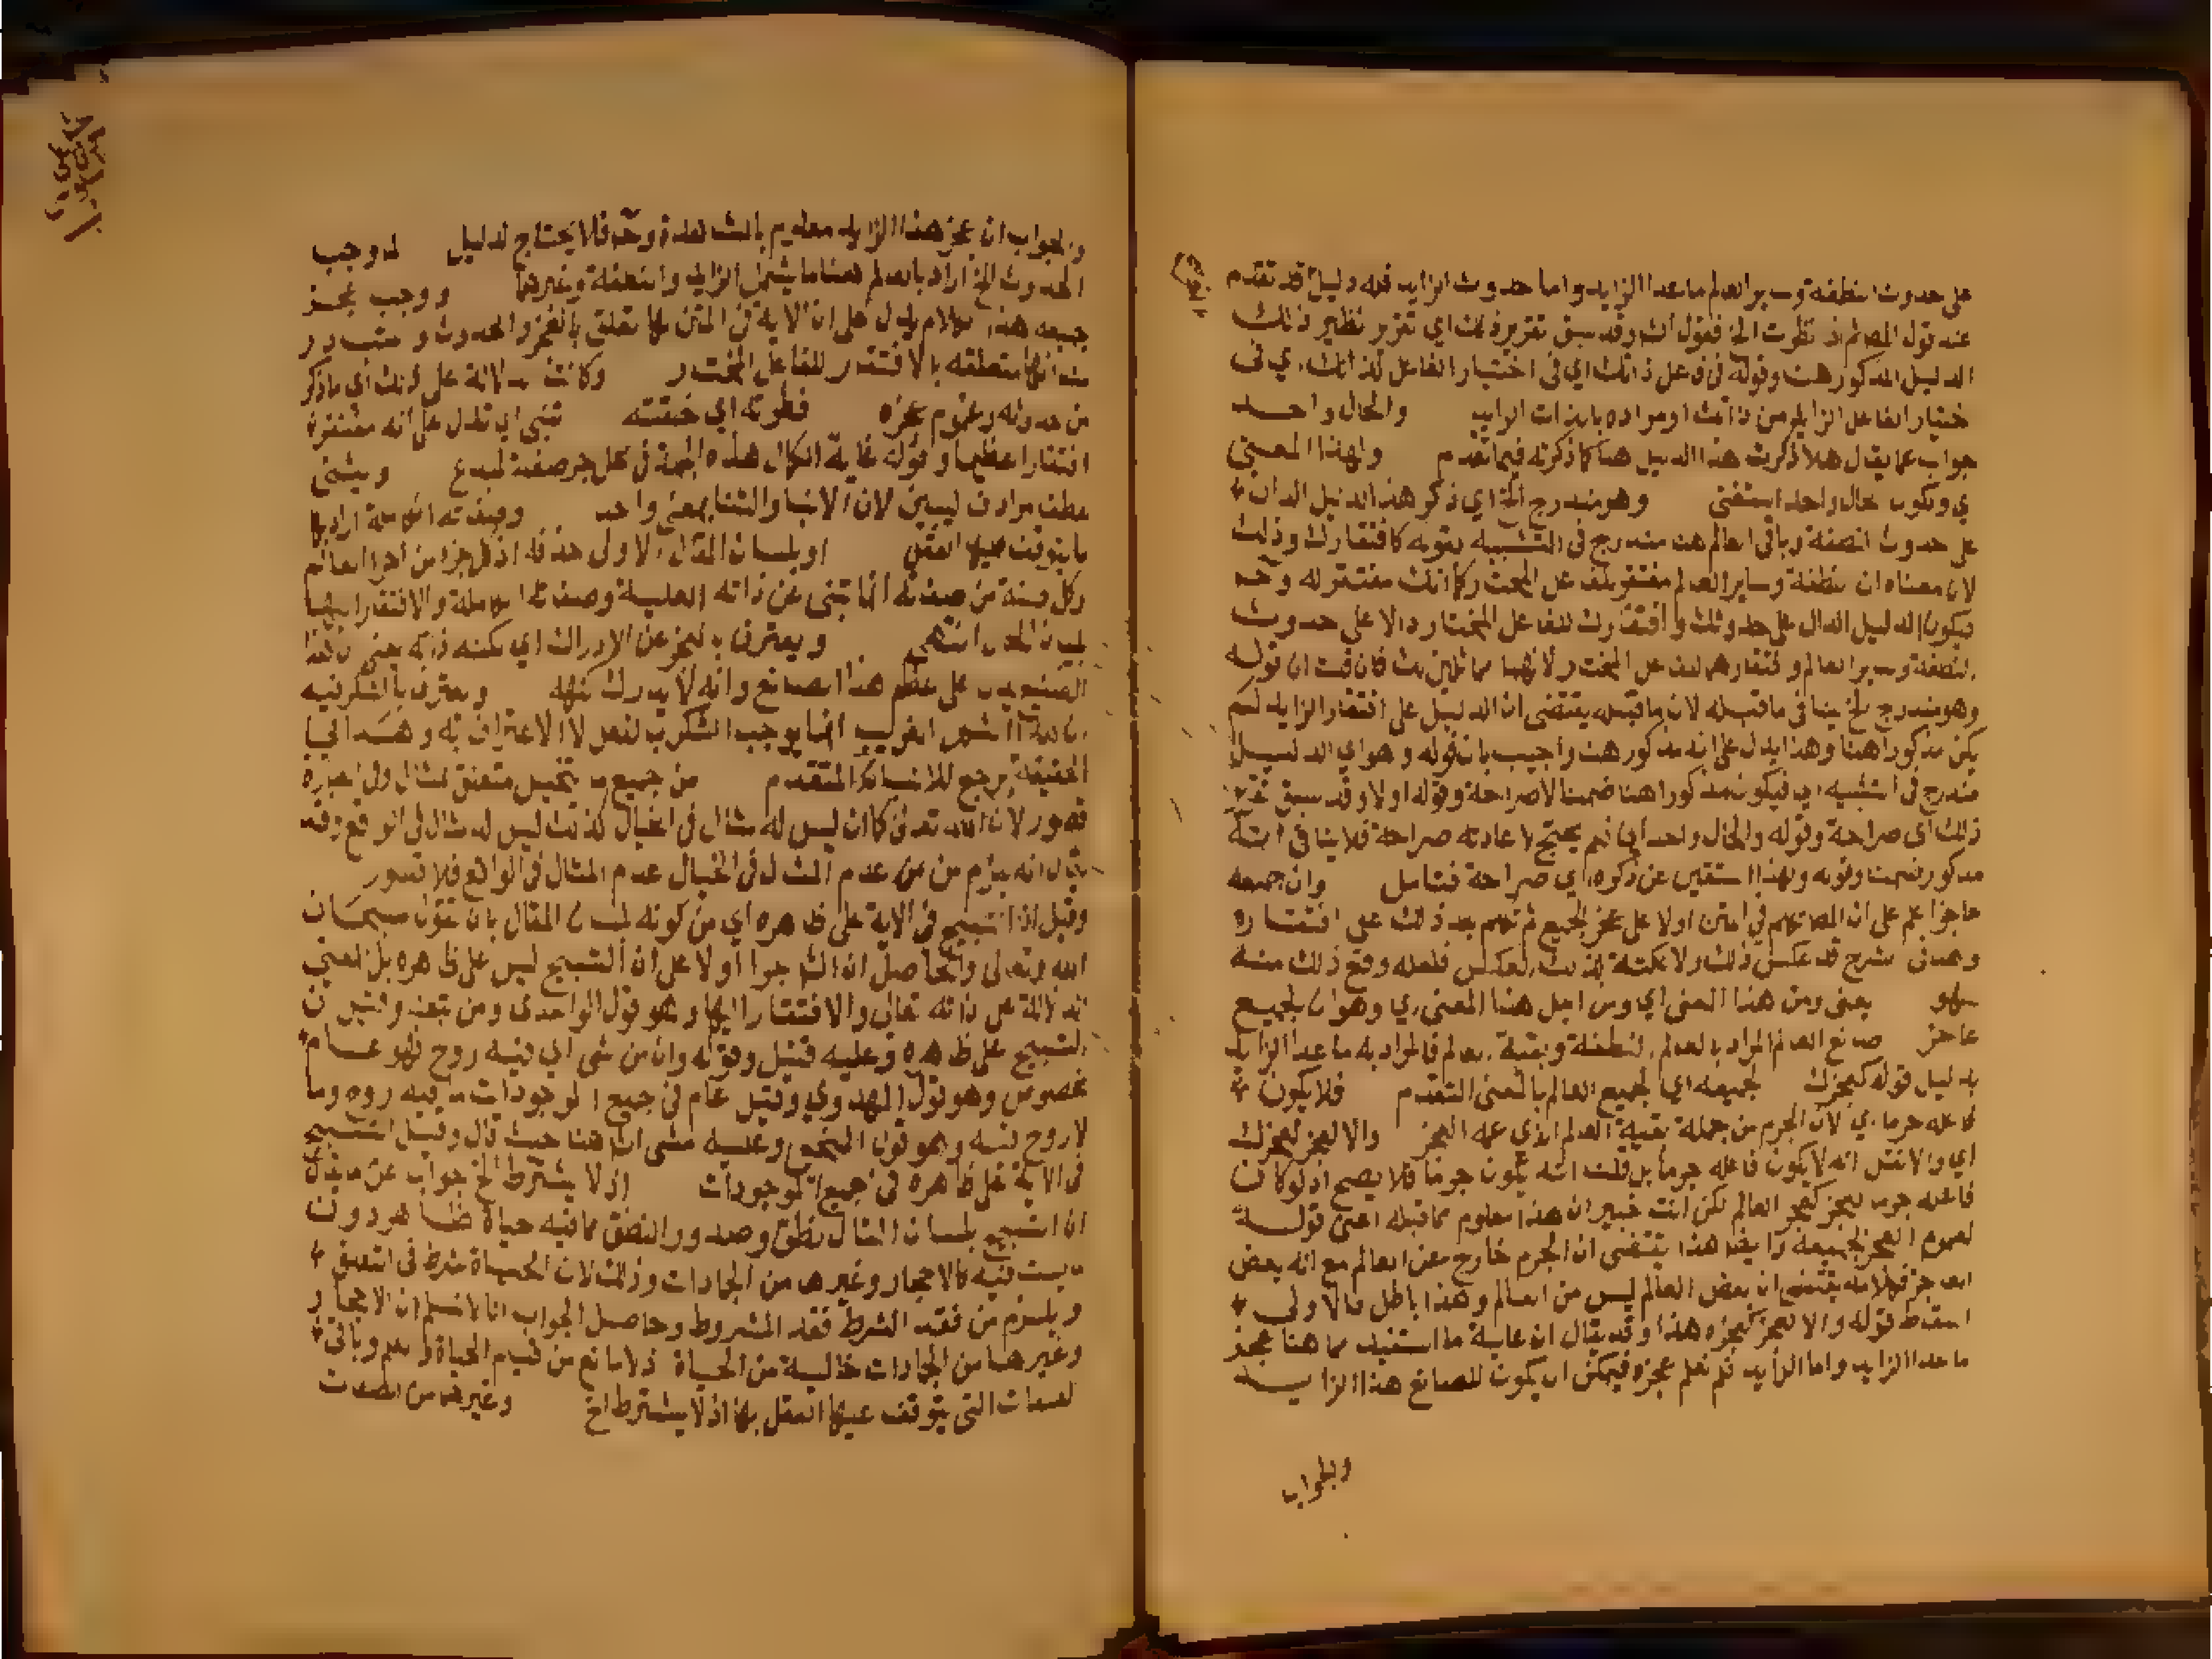 على حدوث النطفة وساير العالم ما عدا الزايد واما حدوث الزايد فله دليل قد تقدم
عند قول المص ثم اذا نظرت الخ فقول الش وقد سبق تقرير ذلك اي تقرير نظير ذلك
الدليل المذكور هنا وقوله في فاعل ذاتك اي في اختيار الفاعل لذاتك اي في
اختيار الفاعل الزايد من ذاتك او مراده بالذات الزايد والحال واحد
جواب عما يقال هلا ذكرت هذا الدليل هنا كما ذكرته فيما تقدم ولهذا المعنى
اي ولكون الحال واحد استغنى وهو مندرج الخ اي ذكر هذا الدليل الدال
على حدوث النطفة وباقي العالم هنا مندرج في التشبيه بقوله كافتقارك وذلك
لان معناه ان النطفة وساير العالم مفتقر للفاعل المختار كما انك مفتقر له وح
فيكون الدليل الدال على حدوثك وافتقارك للفاعل المختار دالا على حدوث
النطفة وساير العالم وافتقارهما للفاعل المختار لانهما مماثلين لك فان قلت ان قوله
وهو مندرج الخ ينافي ما قبله لان ما قبله يقتضي ان الدليل على افتقار الزايد لم
يكن مذكورا هنا وهذا يدل على انه مذكور هنا واجيب بان قوله وهو اي الدليل
مندرج في التشبيه اي فيكون مذكورا هنا ضمنا لا صراحة وقوله اولا وقد سبق تقرير
ذلك اي صراحة وقوله والحال واحد اي فلم يحتج لاعادته صراحة فلا ينافي انه
مذكور ضمنا وقوله ولهذا استغنى عن ذكره اي صراحة فتامل وان جميعه
عاجز اعلم ان المص تكلم في المتن اولا على عجز الجميع ثم تكلم بعد ذلك على افتقاره
وهنا في الشرح قد عكس ذلك ولا نكتة لذلك العكس فلعله وقع ذلك منه
سهو يعني ومن هذا المعنى اي ومن اجل هذا المعنى اي وهو ان الجميع
عاجز صانع العالم المراد بالعالم النطفة وبقية العالم فالمراد به ما عدا الزايد
بدليل قوله كعجزك لجميعه اي لجميع العالم بالمعنى المتقدم فلا يكون
فاعله جرما اي لان الجرم من جملة بقية العالم الذي عمه العجز والا لعجز كعجزك
اي والا نقل انه لا يكون فاعله جرما بل قلت انه يكون جرما فلا يصح اذ لو كان
فاعله جرما لعجز كعجز العالم لكن انت خبير ان هذا معلوم مما قبله اعني قوله
لعموم العجز لجميعه وايضا هذا يقتضي ان الجرم خارج عن العالم مع انه بعض
العاجز فكلامه يقتضي ان بعض العالم ليس من العالم وهذا باطل فالاولى
اسقاط قوله والا لعجز كعجزه هذا وقد يقال ان غاية ما استفيد مما هنا عجز
ما عدا الزايد واما الزايد فلم نعلم عجزه فيمكن ان يكون للصانع هذا الزايد
والجواب
والجواب ان عجز هذا الزايد معلوم بالمشاهدة وح فلا يحتاج لدليل لما وجب
الحدوث الخ اراد بالعالم هنا ما يشمل الزايد والنطفة وغيرهما ووجب عجز
جميعه هذا الكلام يدل على ان الاية في المتن لها تعلق بالعجز والحدوث والمتبادر
منه انها متعلقة بالافتقار للفاعل المختار وكانت دلالة على ذلك اي ما ذكر
من حدوثه وعموم عجزه فطرته اي خلقته تنبي اي تدل على انه مفتقر
افتقارا عظيما وقوله غاية الكمال هذه الجملة في محل جر صفة لمبدع ويثني
عطف مرادف ليبين لان الانبا والثنا بمعنى واحد وصفاته الكاملة اراد بها
ما يتوقف عليها الفعل او بلسان المقال الاولى حذفه اذ كل جزء من اجزا العالم
وكل صفة من صفاته انما تنبي عن ذاته العلية وصفاته الكاملة والافتقار اليها
بلسان الحال انتهى ويعترف بالعجز عن الادراك اي لكنه ذاته يعني ان هذا
الصنيع يدل على عظم هذا الصانع وانه لا يدرك كنهه ويعترف بالشكر فيه
الحقيقة يرجع للانسان المتقدم من جميع ما يتخيل متعلق بمثال وفي العبارة
قصور لان الله تعالى كما ان ليس له مثال في الخيال كذلك ليس له مثال في الواقع وقد
يقال انه يلزم من عدم المثال في الخيال عدم المثال في الواقع فلا قصور
وقيل اذا التسبيح في الاية على ظاهره اي من كونه بلسان المقال بان تقول سبحان
الله وتعالى والحاصل ان الش جرا اولا على ان التسبيح ليس على ظاهره بل المعنى
الدلالة على ذاته تعالى والافتقار اليها وهو قول الواحدي ومن تبعه وقيل ان
التسبيح على ظاهره وعليه فقيل وقوله وان من شي اي فيه روح فهو عام
مخصوص وهو قول المهدوي وقيل عام في جميع الموجودات ما فيه روح وما
لا روح فيه وهو قول النخعي وعليه مشى الش هنا حيث قال وقيل التسبيح
في الاية على ظاهره في جميع الموجودات اذ لا يشترط الخ جواب عن ما يقال
ان التسبيح بلسان المقال نطق وصدور النطق مما فيه حياة ظاهر دون
ما ليست فيه كالاحجار وغيرها من الجمادات وذلك لان الحياة شرط في النطق
ويلزم من فقد الشرط فقد المشروط وحاصل الجواب انا لا نسلم ان الاحجار
وغيرها من الجمادات خالية من الحياة اذ لا مانع من قيام الحياة والعلم وباقي
الصفات التي يتوقف عليها الفعل بها اذ لا يشترط الخ وغيرها من الصفات